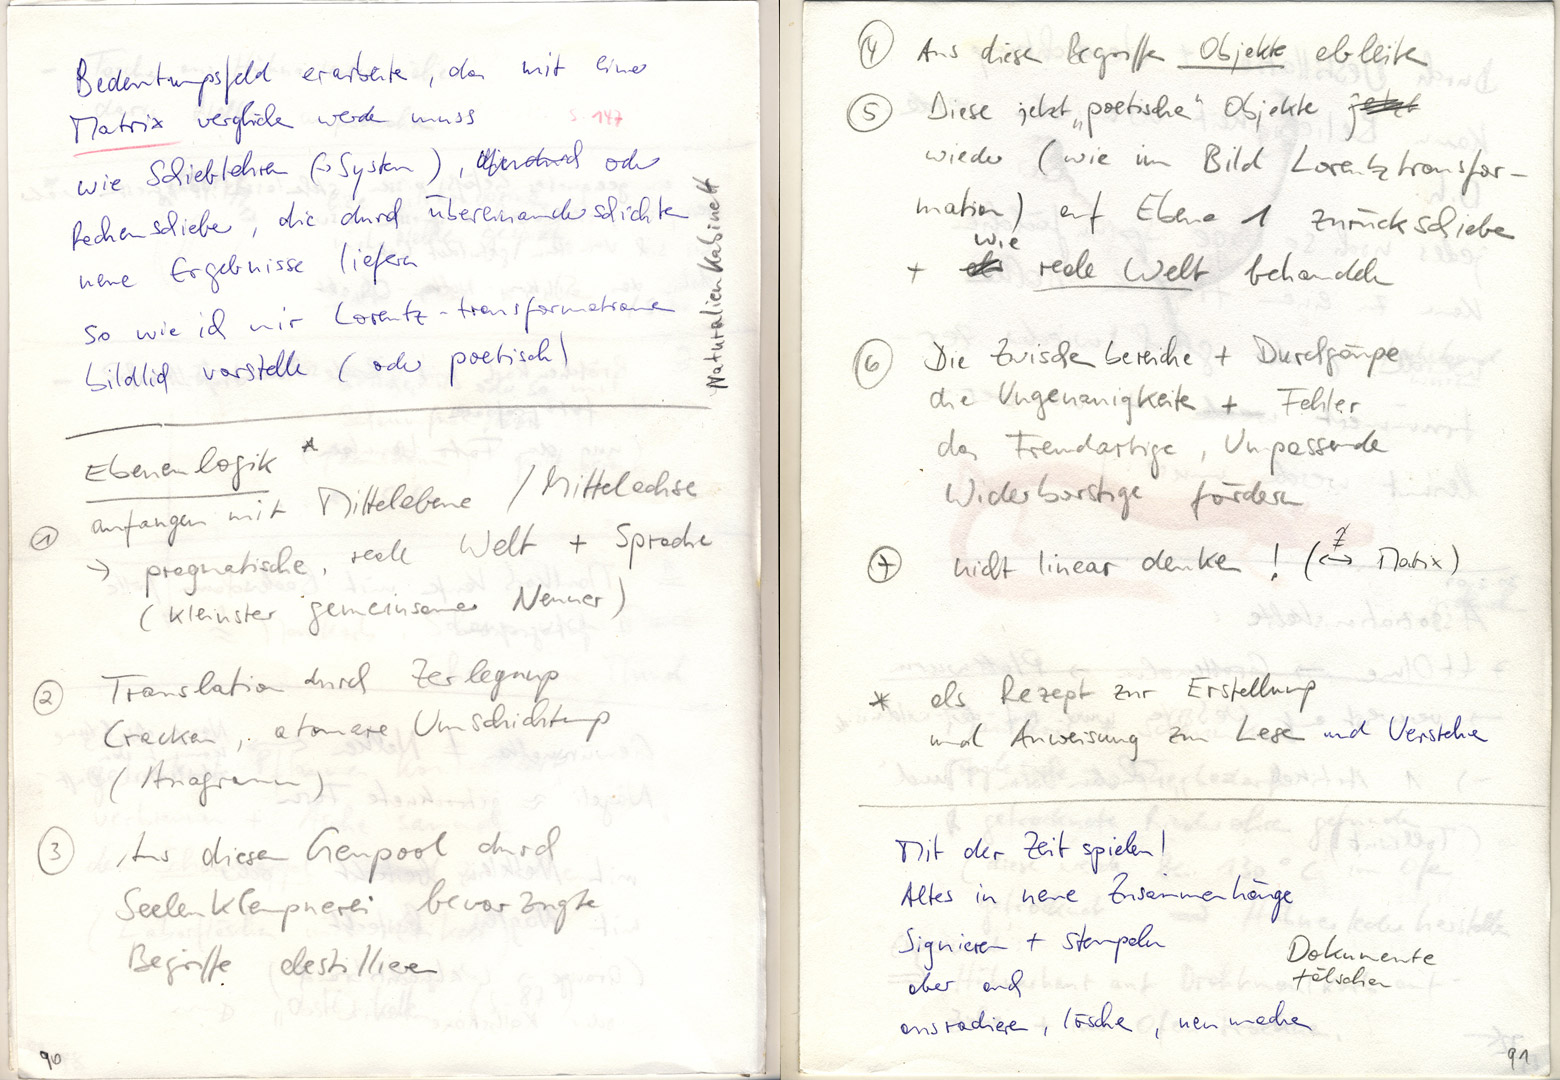 Bedeutungsfeld erarbeiten, das mit einer
Matrix verglichen werden muss
S 147
wie Schieblehren (→ System), oder
Rechenschieber, die durch übereinanderschichten
neue Ergebnisse liefern
so wie ich mir Lorentz-transformationen
bildlich vorstelle (oder poetisch)
Naturalienkabinett
Ebenenlogik *
① anfangen mit Mittelebene / Mittelachse
→ pragmatische, reale Welt + Sprache
(kleinster gemeinsamer Nenner)
② Translation durch Zerlegung
Cracken, atomare Umschichtung
(Anagramm)
③ Aus diesem Genpool durch
Seelenklempnerei bevorzugte
Begriffe destillieren
90
④ Aus diesen Begriffen Objekte ableiten
⑤ Diese jetzt „poetischen“ Objekte jetzt
wieder (wie im Bild Lorentztransfor-
mation) auf Ebene 1 zurückschieben
wie
+ als reale Welt behandeln
⑥ Die Zwischenbereiche + Durchgänge
die Ungenauigkeiten + Fehler
das Fremdartige, Unpassende
Widerborstige fördern
⑦ nicht linear denken! (↔ Matrix)
* als Rezept zur Erstellung
und Anweisung zum Lesen und Verstehen
Mit der Zeit spielen!
Altes in neue Zusammenhänge
Signieren + stempeln
aber auch
ausradieren, löschen, neu machen
Dokumente
fälschen
91